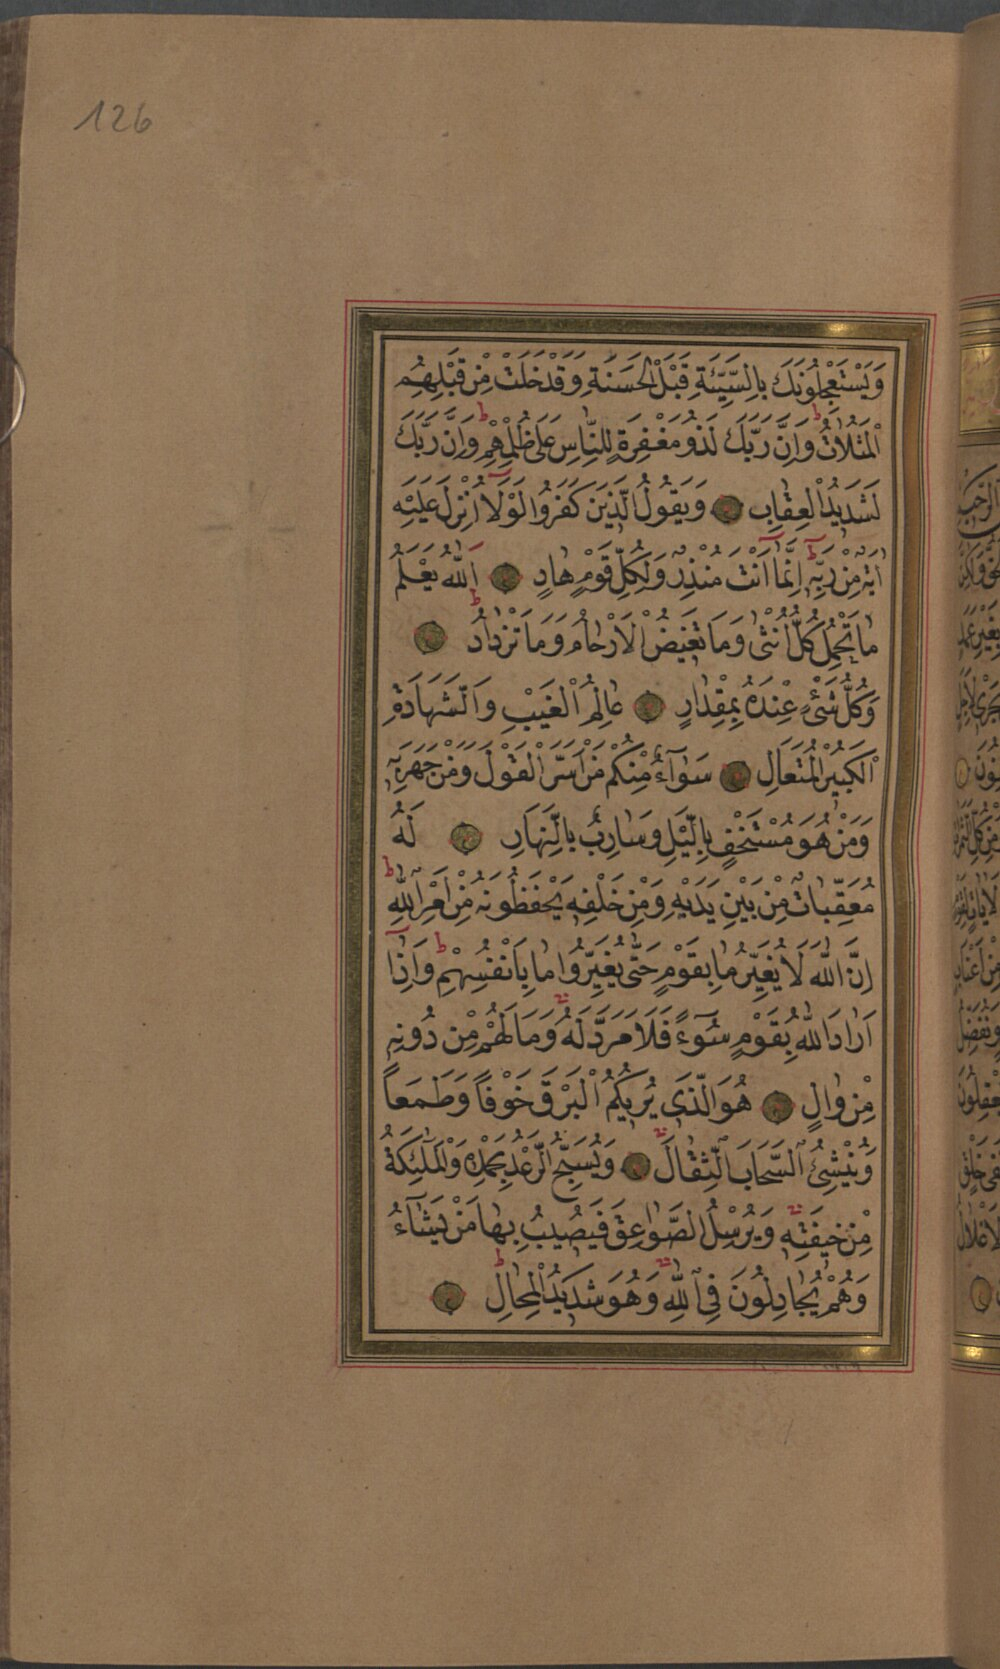 126
وَيَسْتَعْجِلُونَكَ بِالسَّيِّئَةِ قَبْلَ الْحَسَنَةِ وَقَدْ خَلَتْ مِنْ قَبْلِهِمُ
الْمَثُلَاتُ وَاِنَّ رَبَّكَ لَذُو مَغْفِرَةٍ لِلنَّاسِ عَلٰى ظُلْمِهِمْ وَاِنَّ رَبَّكَ
لَشَدِيدُ الْعِقَابِ وَيَقُولُ الَّذِينَ كَفَرُوا لَوْلَا اُنْزِلَ عَلَيْهِ
اٰيَةٌ مِنْ رَبِّهِ اِنَّمَا اَنْتَ مُنْذِرٌ وَلِكُلِّ قَوْمٍ هَادٍ اَللّٰهُ يَعْلَمُ
مَا تَحْمِلُ كُلُّ اُنْثٰى وَمَا تَغِيضُ الْاَرْحَامُ وَمَا تَزْدَادُ
وَكُلُّ شَيْءٍ عِنْدَهُ بِمِقْدَارٍ عَالِمُ الْغَيْبِ وَالشَّهَادَةِ
الْكَبِيرُ الْمُتَعَالِ سَوَاءٌ مِنْكُمْ مَنْ اَسَرَّ الْقَوْلَ وَمَنْ جَهَرَ بِهِ
وَمَنْ هُوَ مُسْتَخْفٍ بِالَّيْلِ وَسَارِبٌ بِالنَّهَارِ لَهُ
مُعَقِّبَاتٌ مِنْ بَيْنِ يَدَيْهِ وَمِنْ خَلْفِهِ يَحْفَظُونَهُ مِنْ اَمْرِ اللّٰهِ
اِنَّ اللّٰهَ لَا يُغَيِّرُ مَا بِقَوْمٍ حَتّٰى يُغَيِّرُوا مَا بِاَنْفُسِهِمْ وَاِذَا
اَرَادَ اللّٰهُ بِقَوْمٍ سُوءًا فَلَا مَرَدَّ لَهُ وَمَا لَهُمْ مِنْ دُونِهِ
مِنْ وَالٍ هُوَ الَّذِي يُرِيكُمُ الْبَرْقَ خَوْفًا وَطَمَعًا
وَيُنْشِئُ السَّحَابَ الثِّقَالَ وَيُسَبِّحُ الرَّعْدُ بِحَمْدِهِ وَالْمَلٰئِكَةُ
مِنْ خِيفَتِهِ وَيُرْسِلُ الصَّوَاعِقَ فَيُصِيبُ بِهَا مَنْ يَشَاءُ
وَهُمْ يُجَادِلُونَ فِي اللّٰهِ وَهُوَ شَدِيدُ الْمِحَالِ